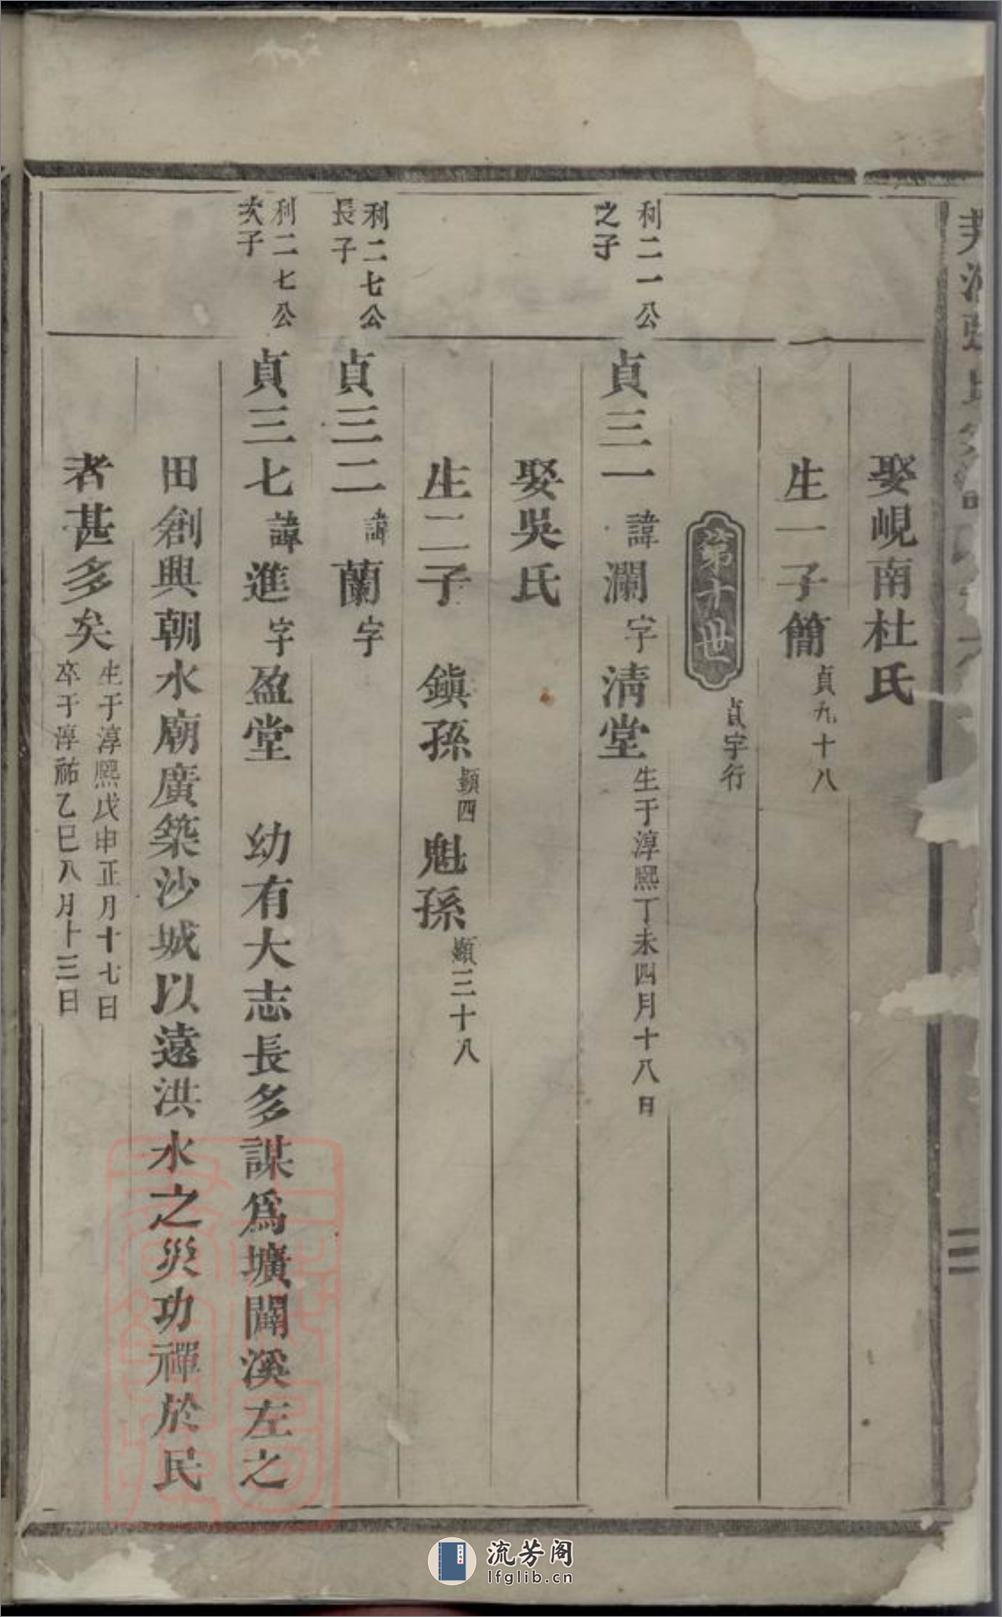 娶峴南杜氏
生一子簡貞九十八
第十世
貞字行
利二一公之子
貞三一諱瀾字清堂生于淳熙丁未四月十八日
娶吳氏
生二子 鎭孫顯四 魁孫顯三十八
利二七公長子
貞三二諱蘭字
利二七公次子
貞三七諱進字盈堂 幼有大志長多謀爲壙闢溪左之
田創興朝水廟廣築沙城以遠洪水之災功禪於民
者甚多矣
生于淳熙戊申正月十七日
卒于淳祐乙巳八月十三日
流芳阁
lfglib.cn